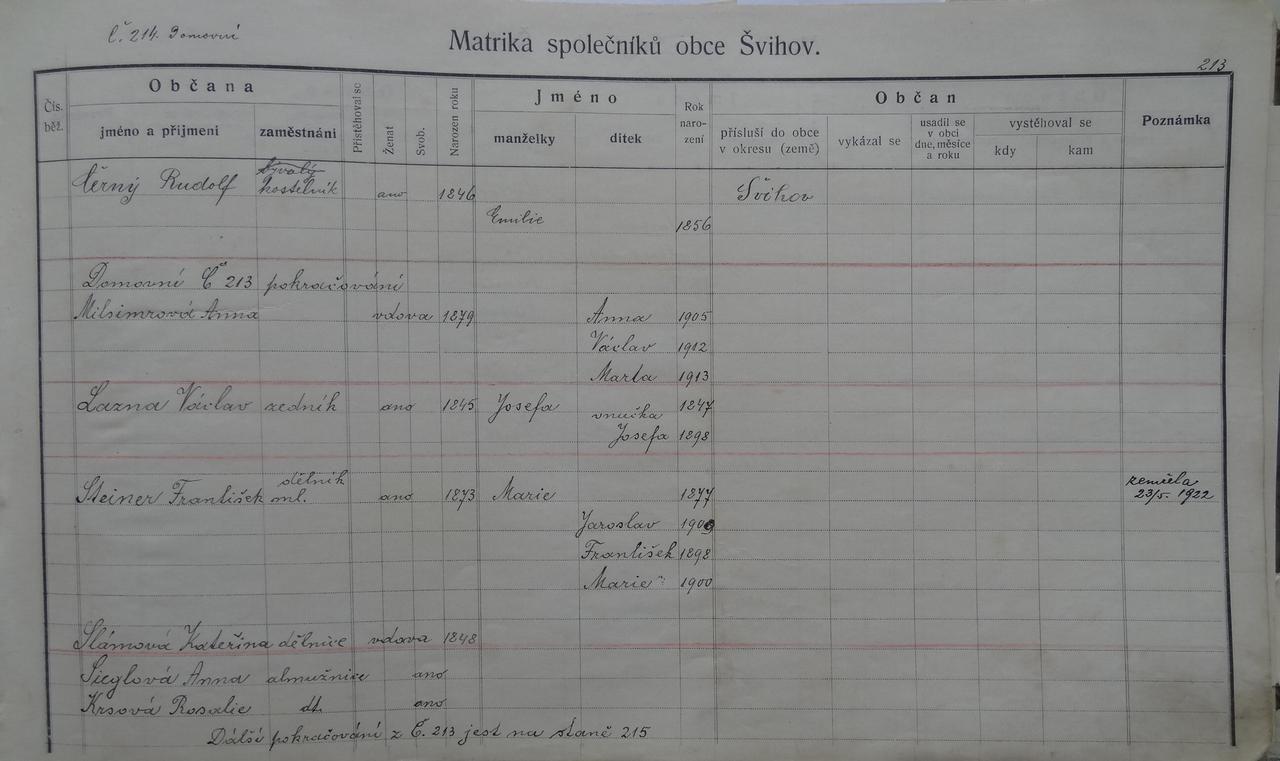 Č. 214. Domovní
Matrika společníků obce Švihov.
213
Čís. běž.
Občana
jméno a příjmení
zaměstnání
Přistěhoval se
Ženat
Svob.
Narozen roku
Jméno
manželky
dítek
Rok naro- zení
Občan
přísluší do obce v okresu (země)
vykázal se
usadil se v obci dne, měsíce a roku
vystěhoval se
kdy
kam
Poznámka
bývalý
Černý Rudolf kostelník ano 1846 Švihov
Emilie 1856
Domovní Č 213 pokračování
Milsimrová Anna vdova 1879 Anna 1905
Václav 1912
Marta 1913
Lazna Václav zedník ano 1845 Josefa 1847
vnučka
Josefa 1898
dělník zemřela
Steiner František ml. ano 1873 Marie 1877 23/5. 1922
Jaroslav 1909
František 1898
Marie 1900
Slámová Kateřina dělnice vdova 1848
Sieglová Anna almužnice ano
Krsová Rosalie dt. ano
Dálší pokračování z Č. 213 jest na staně 215